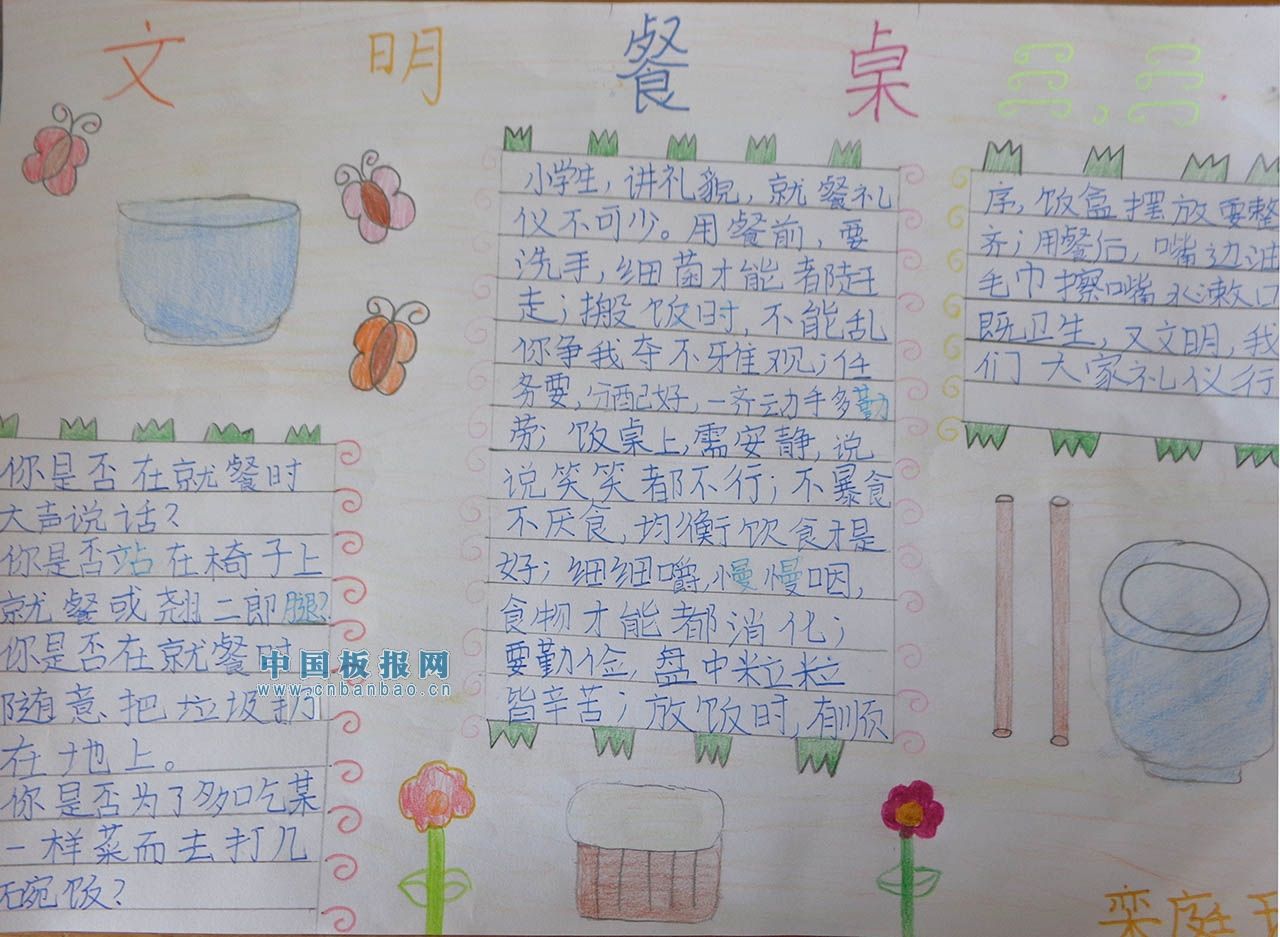 文明餐桌
你是否在就餐时
大声说话?
你是否站在椅子上
就餐或翘二郎腿?
你是否在就餐时
随意把垃圾扔
在地上。
你是否为了多吃某
一样菜而去打几
碗饭?
中国板报网
www.cnbanbao.cn
小学生,讲礼貌,就餐礼
仪不可少。用餐前,要
洗手,细菌才能都赶
走;搬饭时,不能乱
你争我夺不雅观;任
务要,分配好,一齐动手多勤
劳;饭桌上,需安静,说
说笑笑都不行;不暴食
不厌食,均衡饮食才是
好;细细嚼,慢慢咽,
食物才能都消化;
要勤俭,盘中粒粒
皆辛苦;放饭时,有顺
序,饭盒摆放要整
齐;用餐后,嘴边油
毛巾擦嘴水漱口
既卫生,又文明,我
们大家礼仪行
栾庭